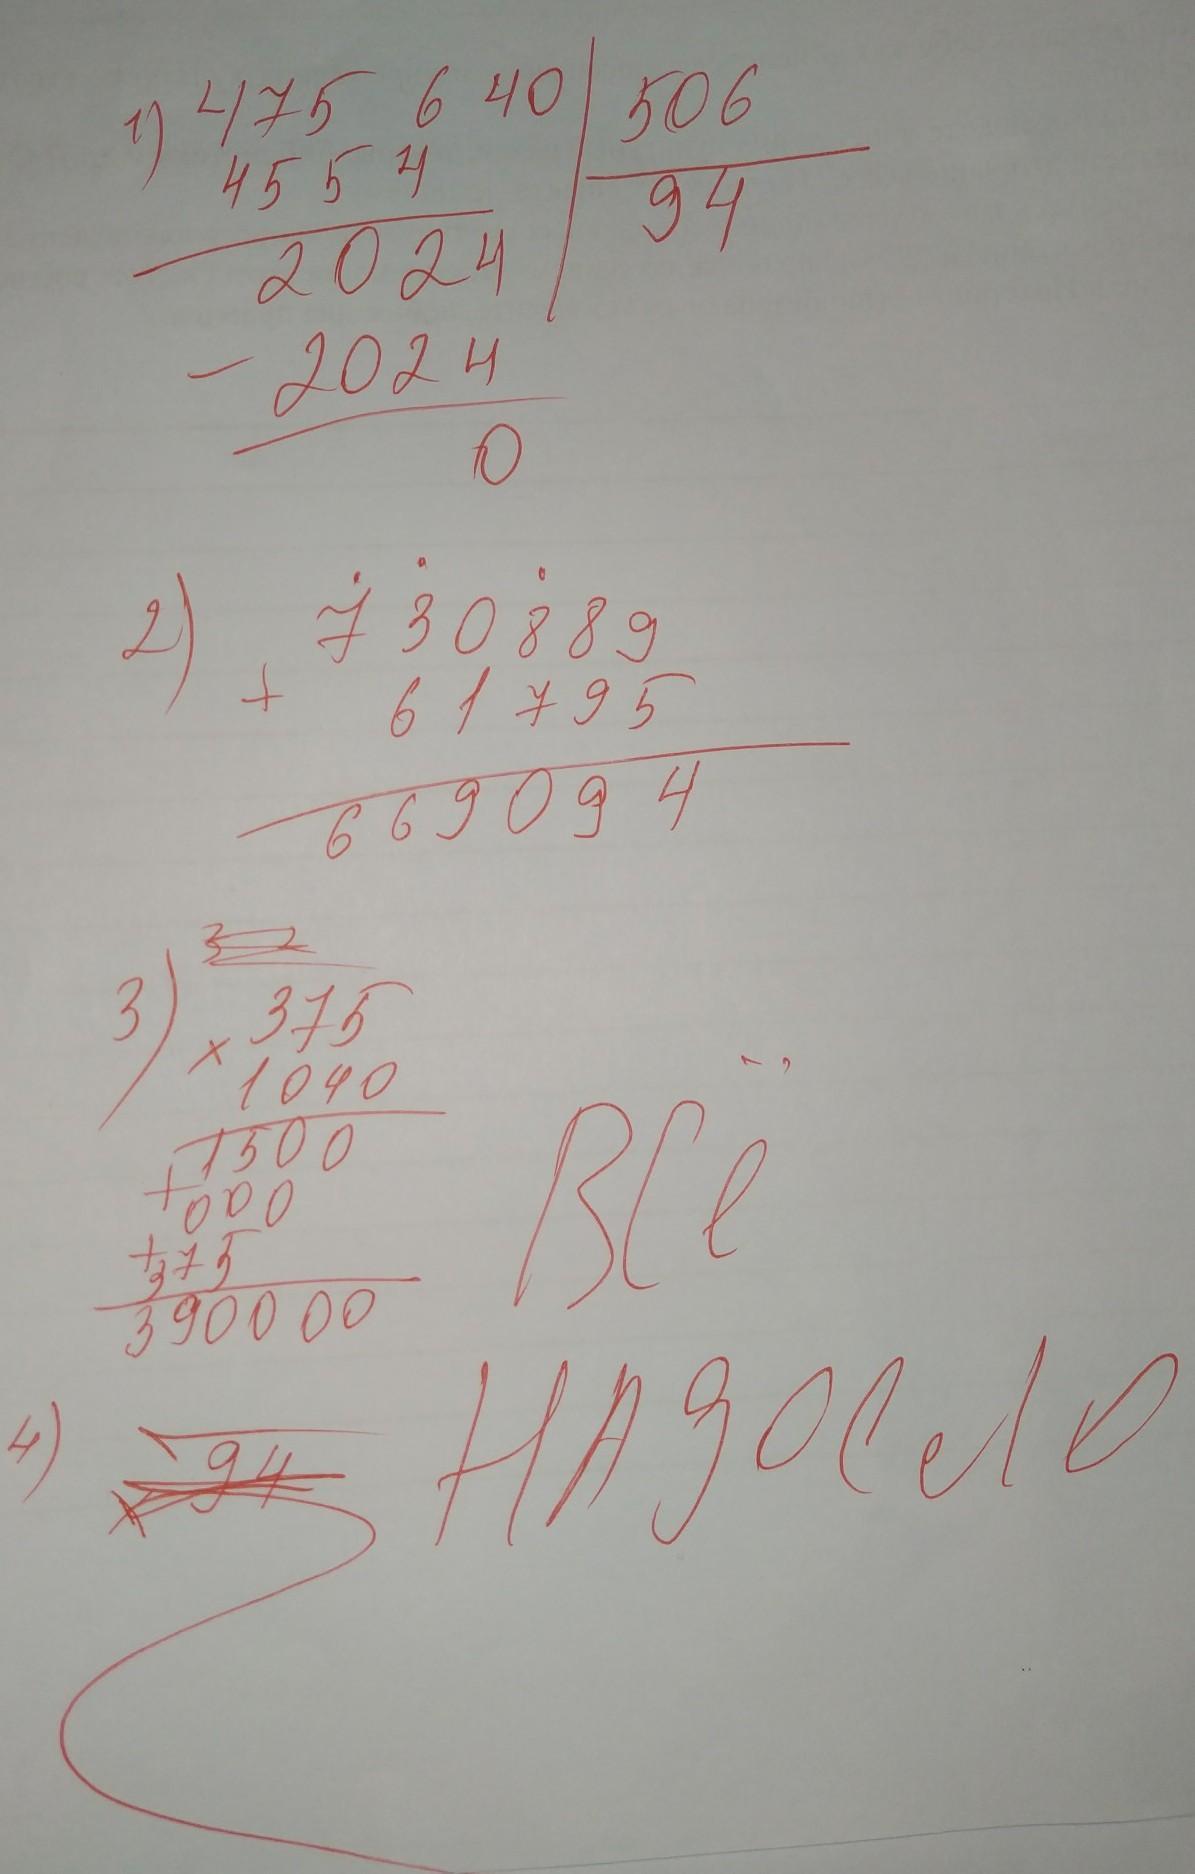 1) 475 640 | 506
4554 | 94
2024
- 2024
0
2) 730889
+ 61795
669094
3 2
3) 375
× 1040
1500
+ 000
+ 375
390000
ВСё
4) 94
НАДОЕЛО